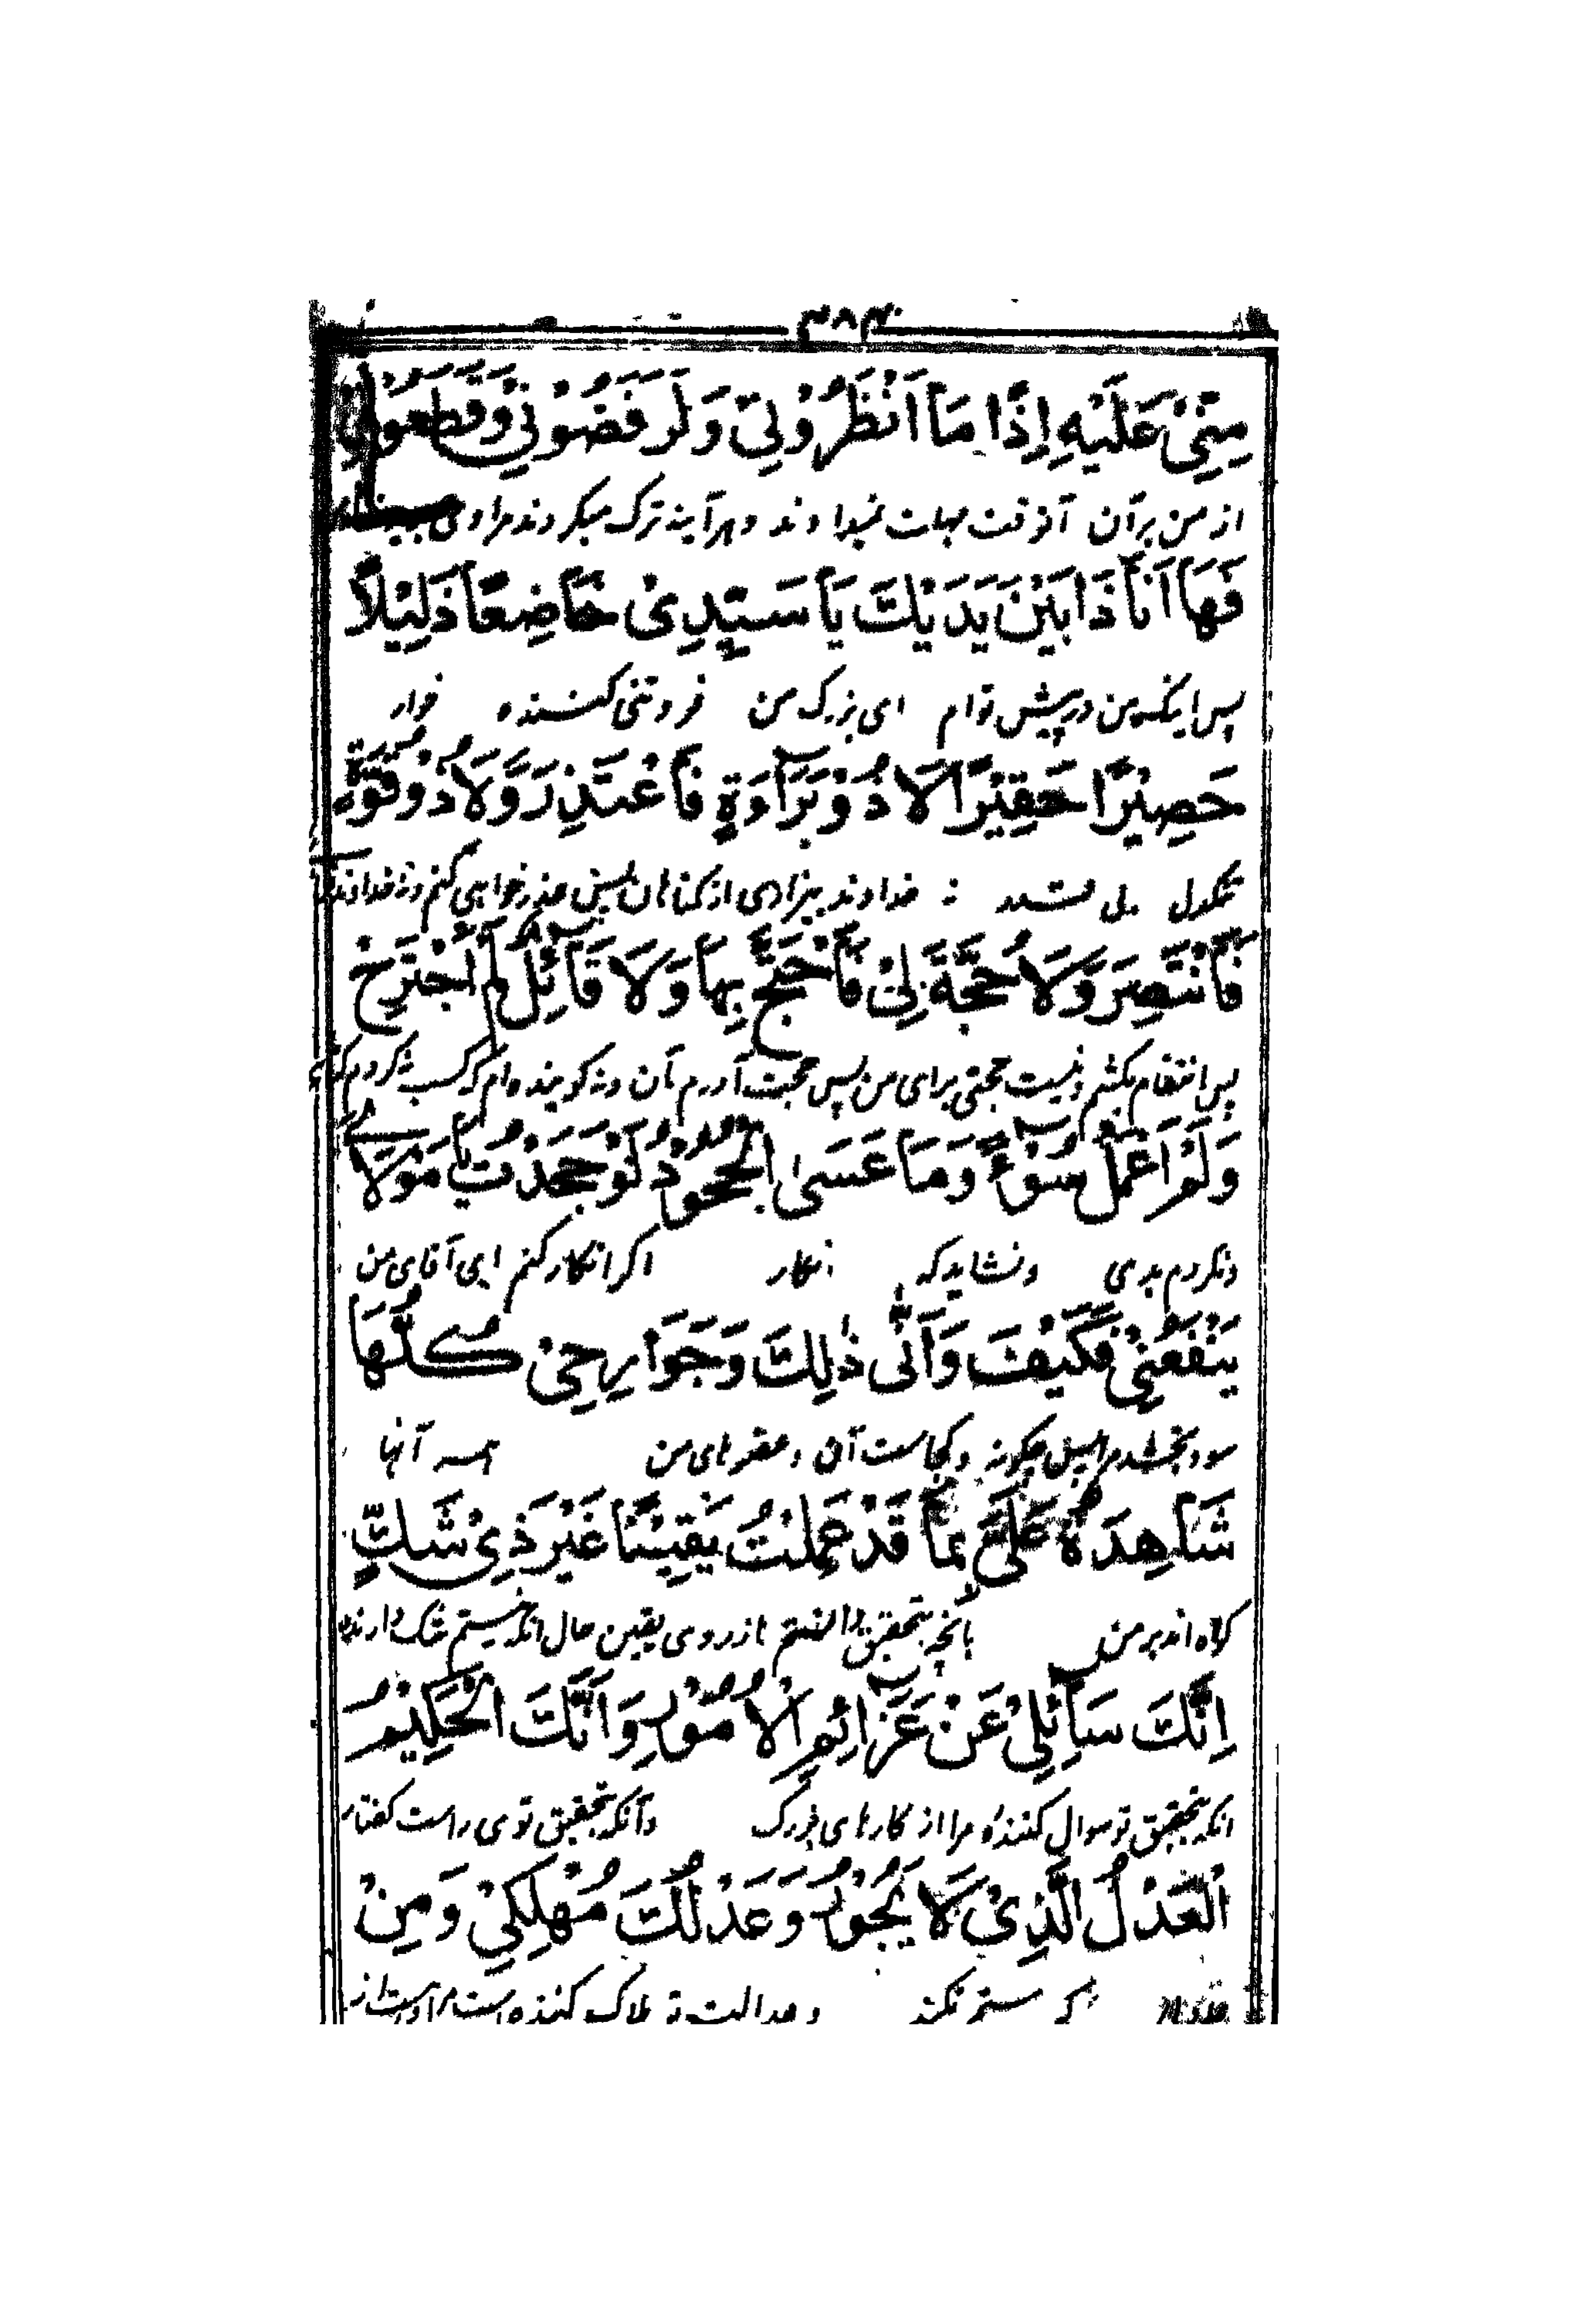 ۳۸۴
مِنِّیْ عَلَیْهِ اِذًا مَا اَنْظَرُوْنِیْ وَلَرَفَضُوْنِیْ وَقَطَعُوْنِیْ
از من بر آن آنوقت مهلت نمیدادند و هر آینه ترک میکردند مرا و می
فَهَا اَنَا ذَا بَیْنَ یَدَیْكَ یَا سَیِّدِیْ خَاضِعًا ذَلِیْلًا
پس اینکه من در پیش توام ای بزرگ من فروتنی کننده خوار
حَصِیْرًا حَقِیْرًا لَا ذُوْ بَرَآءَةٍ فَاَعْتَذِرَ وَّلَا ذُوْ قُوَّةٍ
نه خداوند بیزاری از گناهان پس عذرخواهی کنم و نه خداوند
فَاَنْتَصِرَ وَّلَا حُجَّةَ لِیْ فَاَحْتَجَّ بِهَا وَلَا قَآئِلٌ لَمْ اَجْتَرِحْ
پس انتقام بکشم و نیست حجتی برای من پس حجت آورم بآن و نه گوینده ام که کسب نکردم
وَلَمْ اَعْمَلْ سُوْءً وَمَا عَسَی الْجُحُوْدُ لَوْ جَحَدْتُ یَا مَوْلَایَ
و نکردم بدی و نشاید که انکار اگر انکار کنم ای آقای من
یَنْفَعُنِیْ فَكَیْفَ وَاَنّٰی ذٰلِكَ وَجَوَارِحِیْ كُلُّهَا
سود بخشد مرا پس چگونه و کجاست آن و عضوهای من همه آنها
شَاهِدَةٌ عَلَیَّ بِمَا قَدْ عَمِلْتُ یَقِیْنًا غَیْرَ ذِیْ شَكٍّ
گواه اند بر من بآنچه بتحقیق دانستم از روی یقین حال آنکه نیستم شک دارنده
اِنَّكَ سَآئِلِیْ عَنْ عَزَآئِمِ الْاُمُوْرِ وَاَنَّكَ الْحَكِیْمُ
آنکه بتحقیق تو سوال کنندهٔ مرا از کارهای بزرگ و آنکه بتحقیق توی راست گفتار
الْعَدْلُ الَّذِیْ لَا یَجُوْرُ وَعَدْلُكَ مُهْلِكِیْ وَمِنْ
که ستم نکند و عدالت تو هلاک کننده است مرا و از